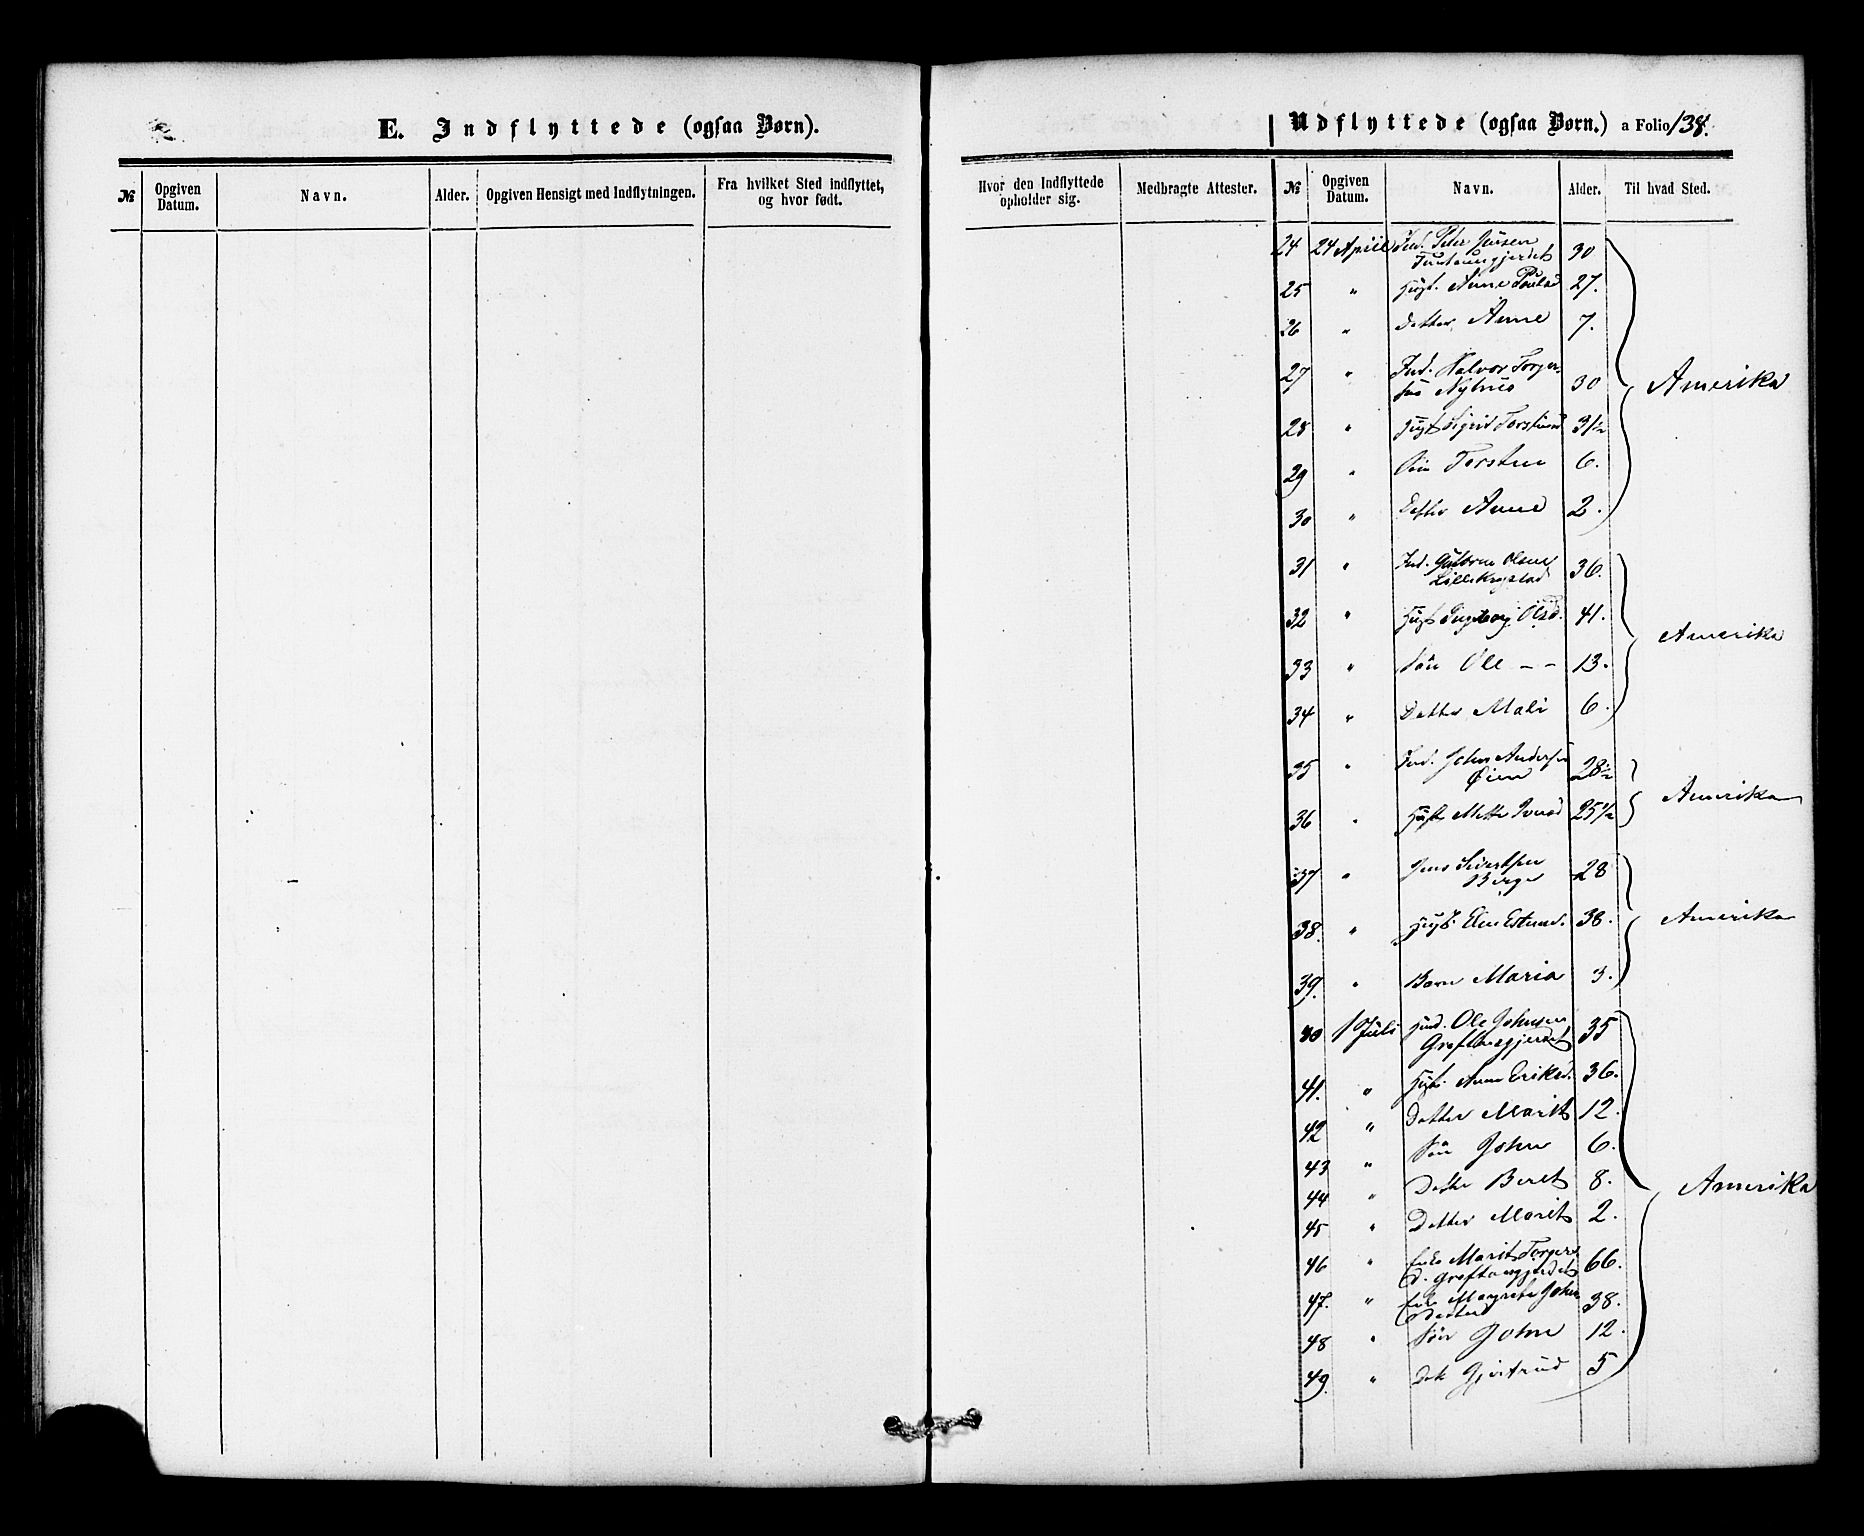 E. Indflyttede (ogsaa Børn).
Udflyttede (ogsaa Børn.) a Folio 138.
№ Opgiven Datum. Navn. Alder. Opgiven Hensigt med Indflytningen. Fra hvilket Sted indflyttet, og hvor født. Hvor den Indflyttede opholder sig. Medbragte Attester. № Opgiven Datum. Navn. Alder. Til hvad Sted.
24 24 April Ind. Peter Jensen
30
25 " Hust. Anne 27.
26 " Datter Anne 7.
27 " Ind. Halvor Torger-
sen 30 Amerika
28 " Hust Sigrit 31½
29 " Søn Torsten 6.
30 " Datter Anne 2.
31 " Ind. Olsen 36.
32 " Hust Ingeborg Olsd. 41.
Amerika
33 " Søn Ole - - 13.
34 " Datter Mali 6.
35 " Ind. John Andersen
Øien 28½
Amerika
36 " Hust Mette Iversd 25½
37 " Jens Sivertsen
Berge 28
38. " Hust. Elen Estensd. 38. Amerika
39. " Barn Maria 3.
40 1 Juli Ind. Ole Johnsen
Græftaasgjerdet 35
41. " Hust. Anne Eriksd. 36.
42 " Datter Marit 12.
43 " Søn John 6.
44 " Datter Beret 8.
Amerika
45 " Datter Marit 2.
46 " Enke Marit Torgers
d. Græftaasgjerdet 66.
47. " Enke Margrete John
Datter 38.
48 " Søn John 12.
49. " Dat Gjertrud 5